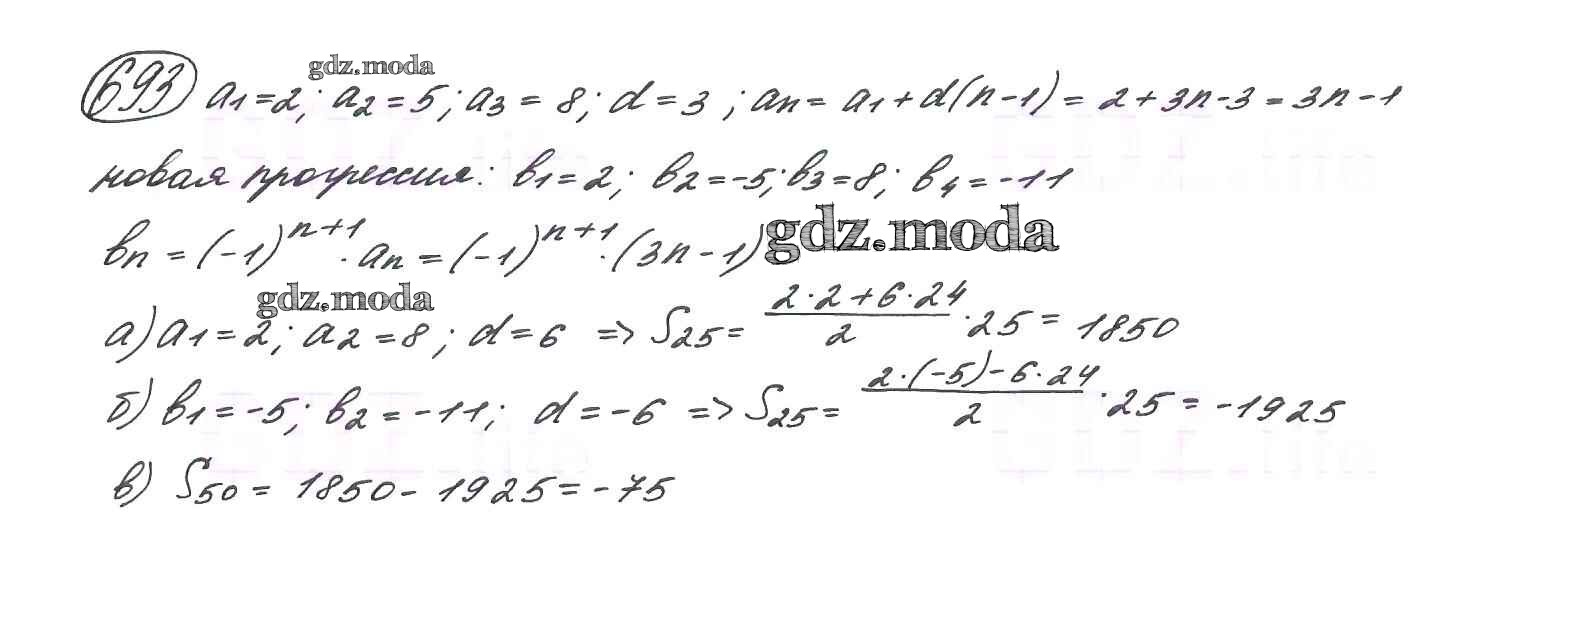 693 a₁=2; a₂=5; a₃=8; d=3; aₙ=a₁+d(n-1)=2+3n-3=3n-1
новая прогрессия: в₁=2; в₂=-5; в₃=8; в₄=-11
вₙ=(-1)ⁿ⁺¹·aₙ=(-1)ⁿ⁺¹·(3n-1) gdz.moda
gdz.moda
gdz.moda
а) a₁=2; a₂=8; d=6 => S₂₅= (2·2+6·24)/2 ·25=1850
б) в₁=-5; в₂=-11; d=-6 => S₂₅= (2·(-5)-6·24)/2 ·25=-1925
в) S₅₀=1850-1925=-75